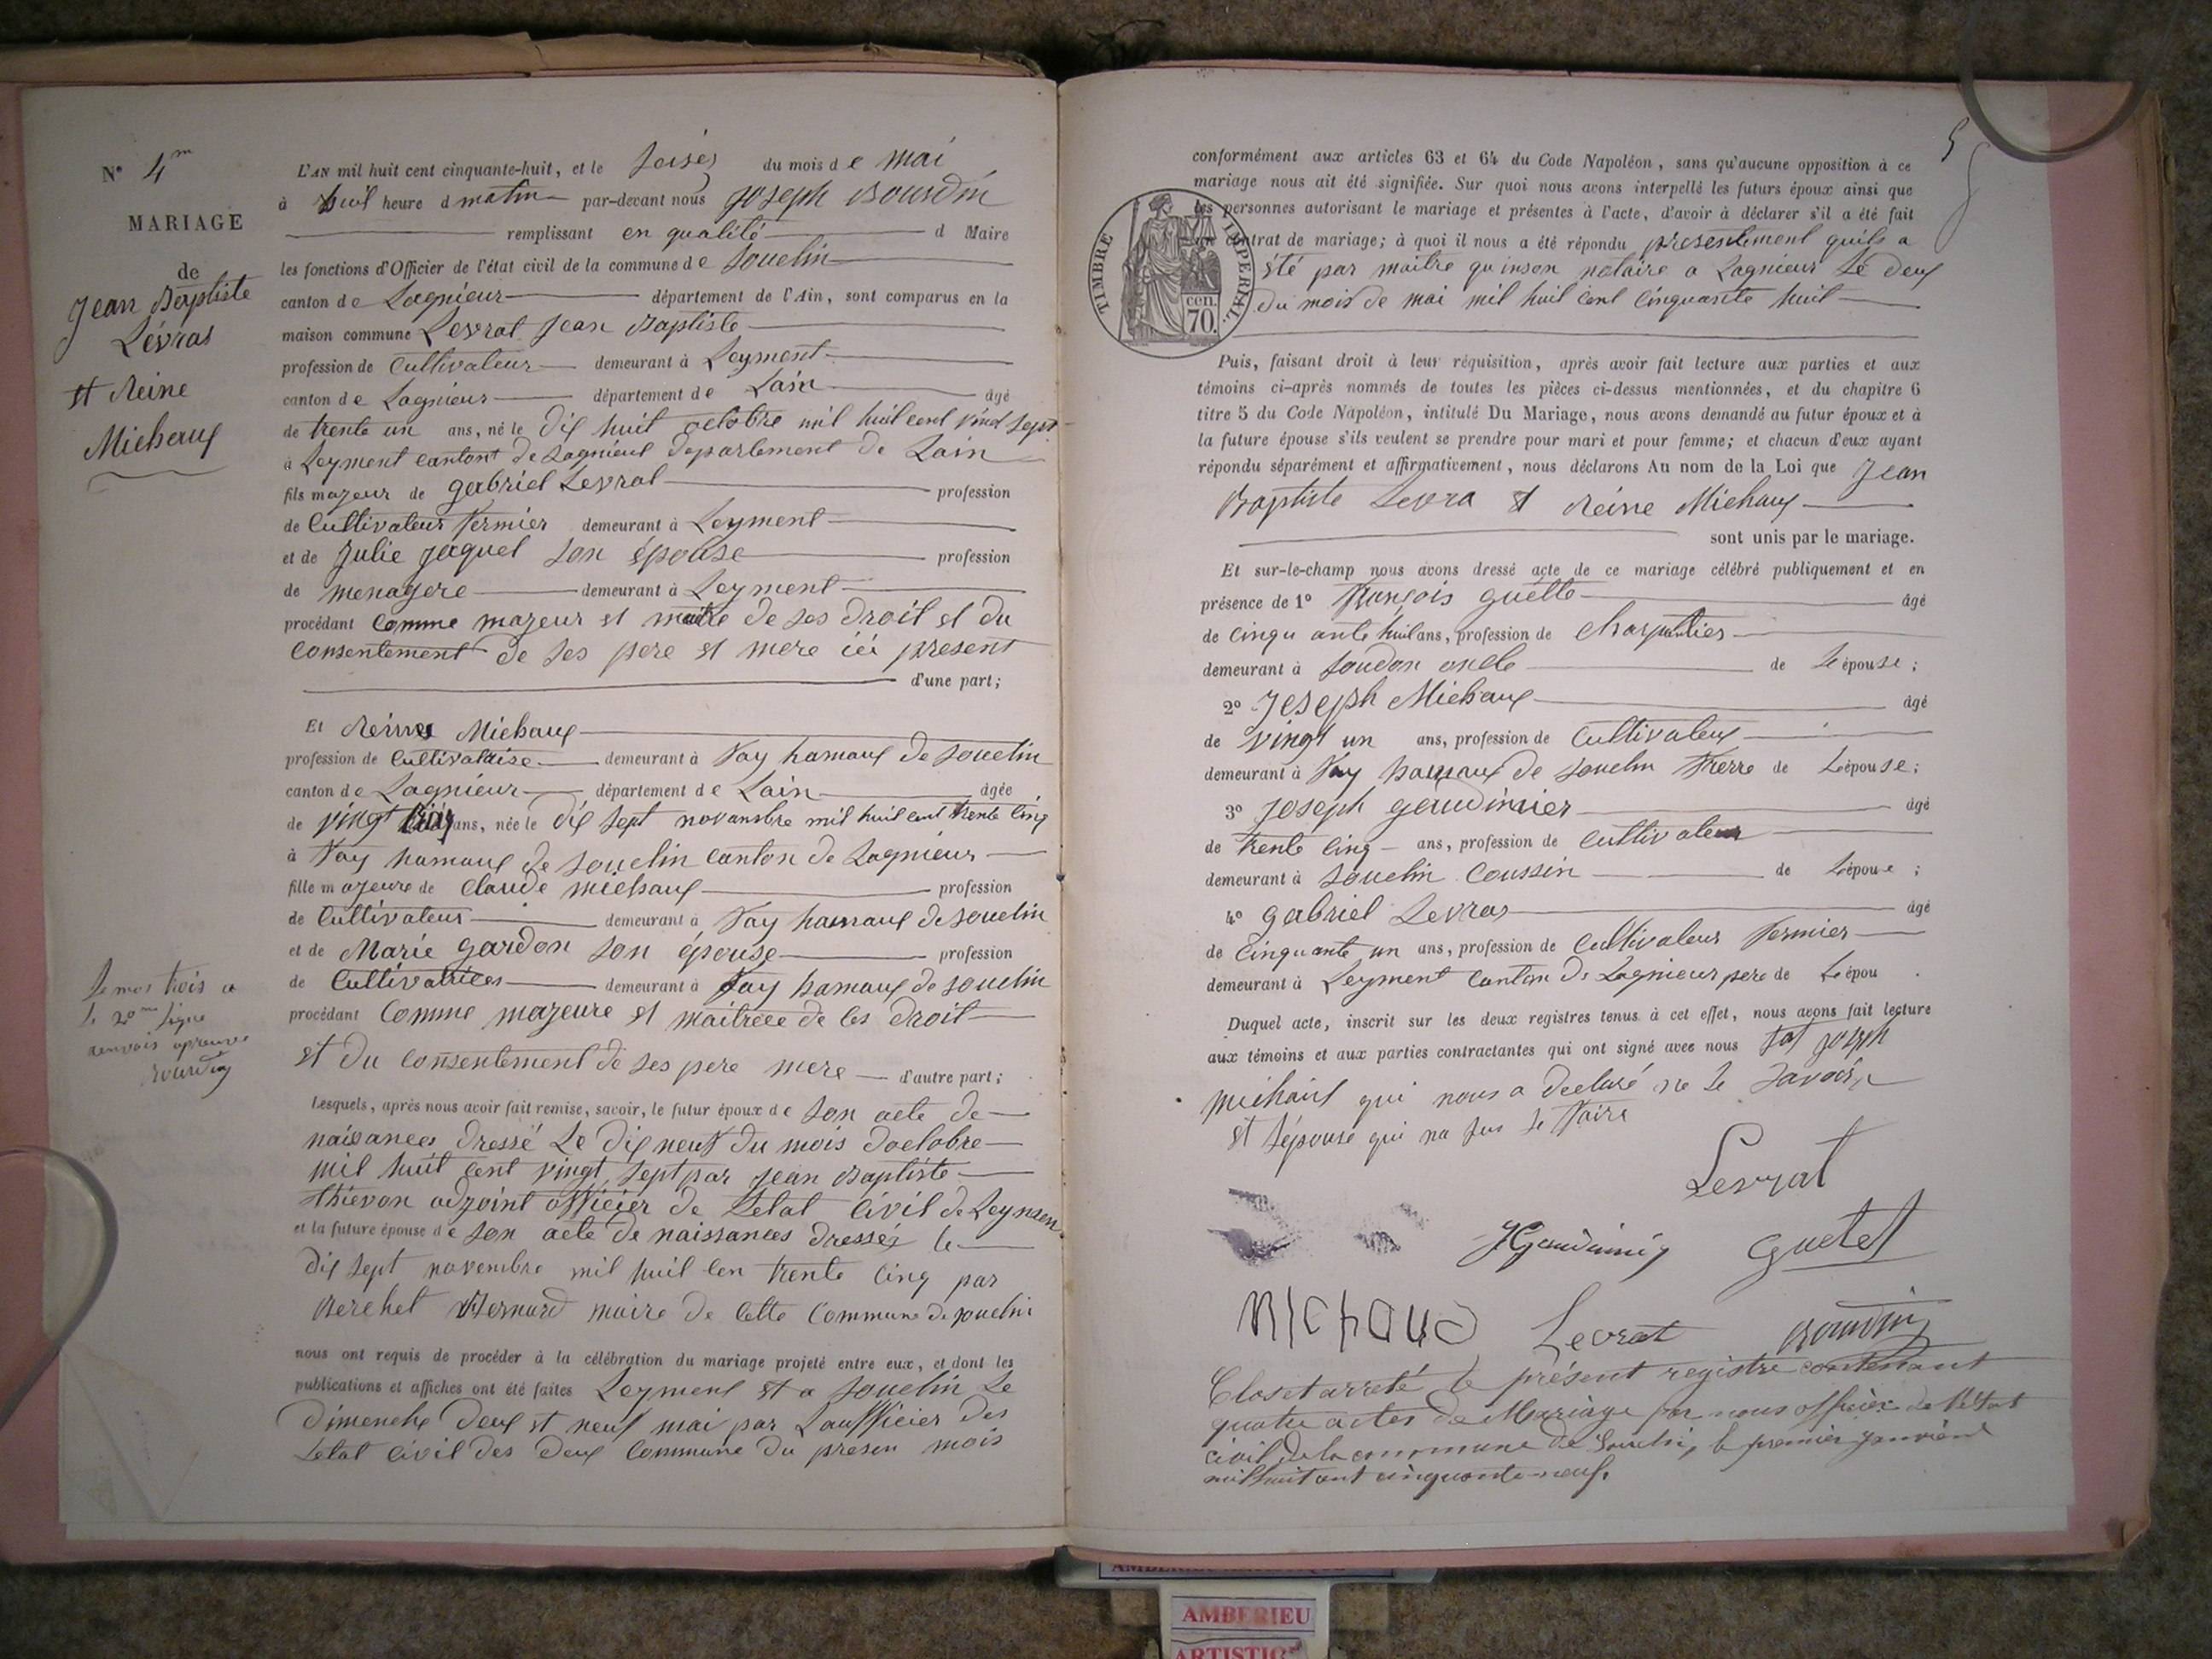 N° 4m
MARIAGE
de
Jean Baptiste
Lévras
et Reine
Michaux
L'AN mil huit cent cinquante-huit, et le Seisez du mois d e mai
à huit heure d matin par-devant nous Joseph Bourdin
remplissant en qualité d Maire
les fonctions d'Officier de l'état civil de la commune de Souclin
canton de Lagnieur département de l'Ain, sont comparus en la
maison commune Levrat Jean Baptiste
profession de Cultivateur demeurant à Leyment
canton de Lagnieur département de Lain âgé
de trente un ans, né le dix huit octobre mil huit cent vind sept
à Leyment cantont de Lagnieux departement de Lain
fils majeur de gabriel Levrat profession
de Cultivateur fermier demeurant à Leyment
et de Julie jaquel son épouse profession
de menagere demeurant à Leyment
procédant comme majeur et maitre de ses droit et du
consentement de ses pere et mere ici present
d'une part;
Et Reine Michaux
profession de Cultivatrise demeurant à Fay hamaux de Souclin
canton de Lagnieur département de Lain âgée
de vingt trois ans, née le dix sept novanbre mil huit cent trente cinq
à Fay hamaux de Souclin canton de Lagnieur
fille majeure de Claude Michaux profession
de Cultivateur demeurant à Fay hamaux de Souclin
et de Marie gardon son épouse profession
de Cultivatrices demeurant à Fay hamaux de Souclin
procédant Comme majeure et maitreee de ces droit
et du consentement de ses pere mere d'autre part;
Le mot trois a
la 20me ligne
renvois aprouvé
Bourdin
Lesquels, après nous avoir fait remise, savoir, le futur époux de son acte de
naisances dressé Le dix neuf du mois doctobre
mil huit cent vingt sept par Jean Baptiste
thievon adjoint officier de Letat civil de Leymen
et la future épouse de son acte de naissances dressée le
dix sept novembre mil huit cen trente cinq par
Berchet Bernard maire de cette Commune de Souclin
nous ont requis de procéder à la célébration du mariage projeté entre eux, et dont les
publications et affiches ont été faites Leyment et a Souclin Le
dimenche deux et neuf mai par Laufficier des
Letat civil des deux commune du presen mois
5
conformément aux articles 63 et 64 du Code Napoléon, sans qu'aucune opposition à ce
mariage nous ait été signifiée. Sur quoi nous avons interpellé les futurs époux ainsi que
les personnes autorisant le mariage et présentes à l'acte, d'avoir à déclarer s'il a été fait
un contrat de mariage; à quoi il nous a été répondu presentement quils a
été par maitre quinson notaire a Lagnieur Le deux
du mois de mai mil huit cent cinquante huit
TIMBRE IMPERIAL.
cen.
70.
Puis, faisant droit à leur réquisition, après avoir fait lecture aux parties et aux
témoins ci-après nommés de toutes les pièces ci-dessus mentionnées, et du chapitre 6
titre 5 du Code Napoléon, intitulé Du Mariage, nous avons demandé au futur époux et à
la future épouse s'ils veulent se prendre pour mari et pour femme; et chacun d'eux ayant
répondu séparément et affirmativement, nous déclarons Au nom de la Loi que Jean
Baptiste Levra et Reine Michaux
sont unis par le mariage.
Et sur-le-champ nous avons dressé acte de ce mariage célébré publiquement et en
présence de 1° François guette âgé
de cinqu ante huit ans, profession de charpentier
demeurant à Soudon oncle de Lépouse;
2° Joseph Michaux âgé
de vingt un ans, profession de Cultivateux
demeurant à Fay hamaux de Souclin frerre de Lépouse;
3° Joseph gaudimier âgé
de trente cinq ans, profession de Cultivateur
demeurant à Souclin Coussin de Lépouse;
4° Gabriel Levras âgé
de Cinquante un ans, profession de Cultivateur fermier
demeurant à Leyment Canton de Lagnieur pere de Lépou
Duquel acte, inscrit sur les deux registres tenus à cet effet, nous avons fait lecture
aux témoins et aux parties contractantes qui ont signé avec nous
Michaux qui nous a declaré ne le savoir
et Lépouse qui na pus le faire
Levrat
JGaudimié guetet
MICHAUD Levrat Bourdin
Clos et arreté le présent registre contenant
quatre actes de Mariage par nous officier de l'état
civil de la commune de Souclin, le premier janvier
mil huit cent cinquante-neuf.
AMBERIEU
ARTISTIQUE